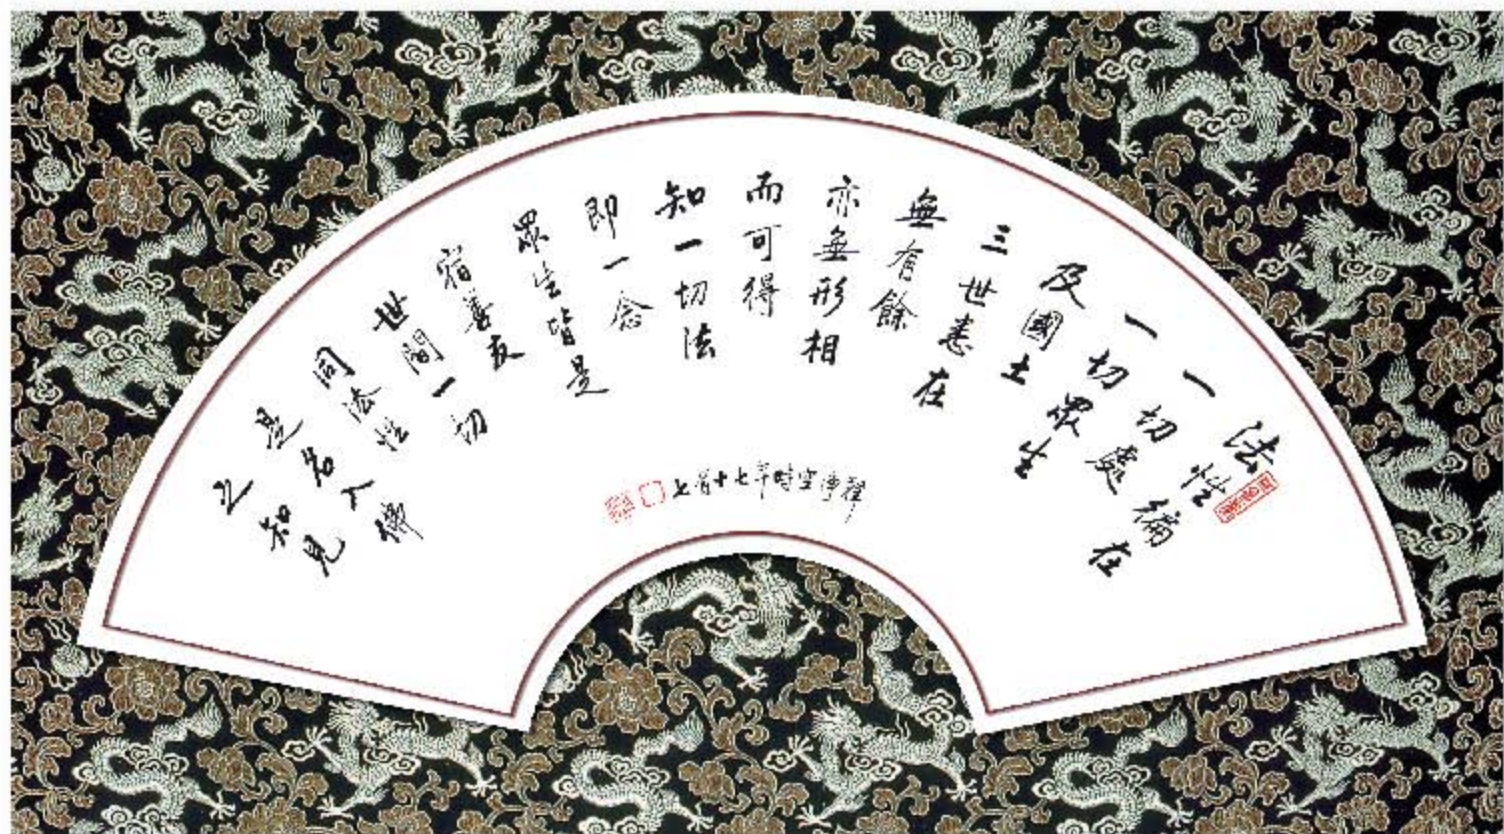 法性徧在
一切處
一切眾生
及國土
三世悉在
無有餘
亦無形相
而可得
知一切法
即一念
眾生皆是
宿善友
世間一切
同法性
是名入佛
之知見
釋淨空時年七十有七